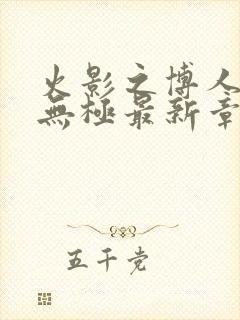 火影之博人
無極最新章
五千党